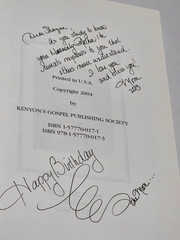 Dear Sharon
As you study to know
your
reveals mysteries to you that
others never understand.
I love you
and bless you!
2013
Printed in U.S.A.
Copyright 2004
KENYON'S GOSPEL PUBLISHING SOCIETY
ISBN 1-57770-017-1
ISBN 978-1-57770-017-3
Happy Birthday